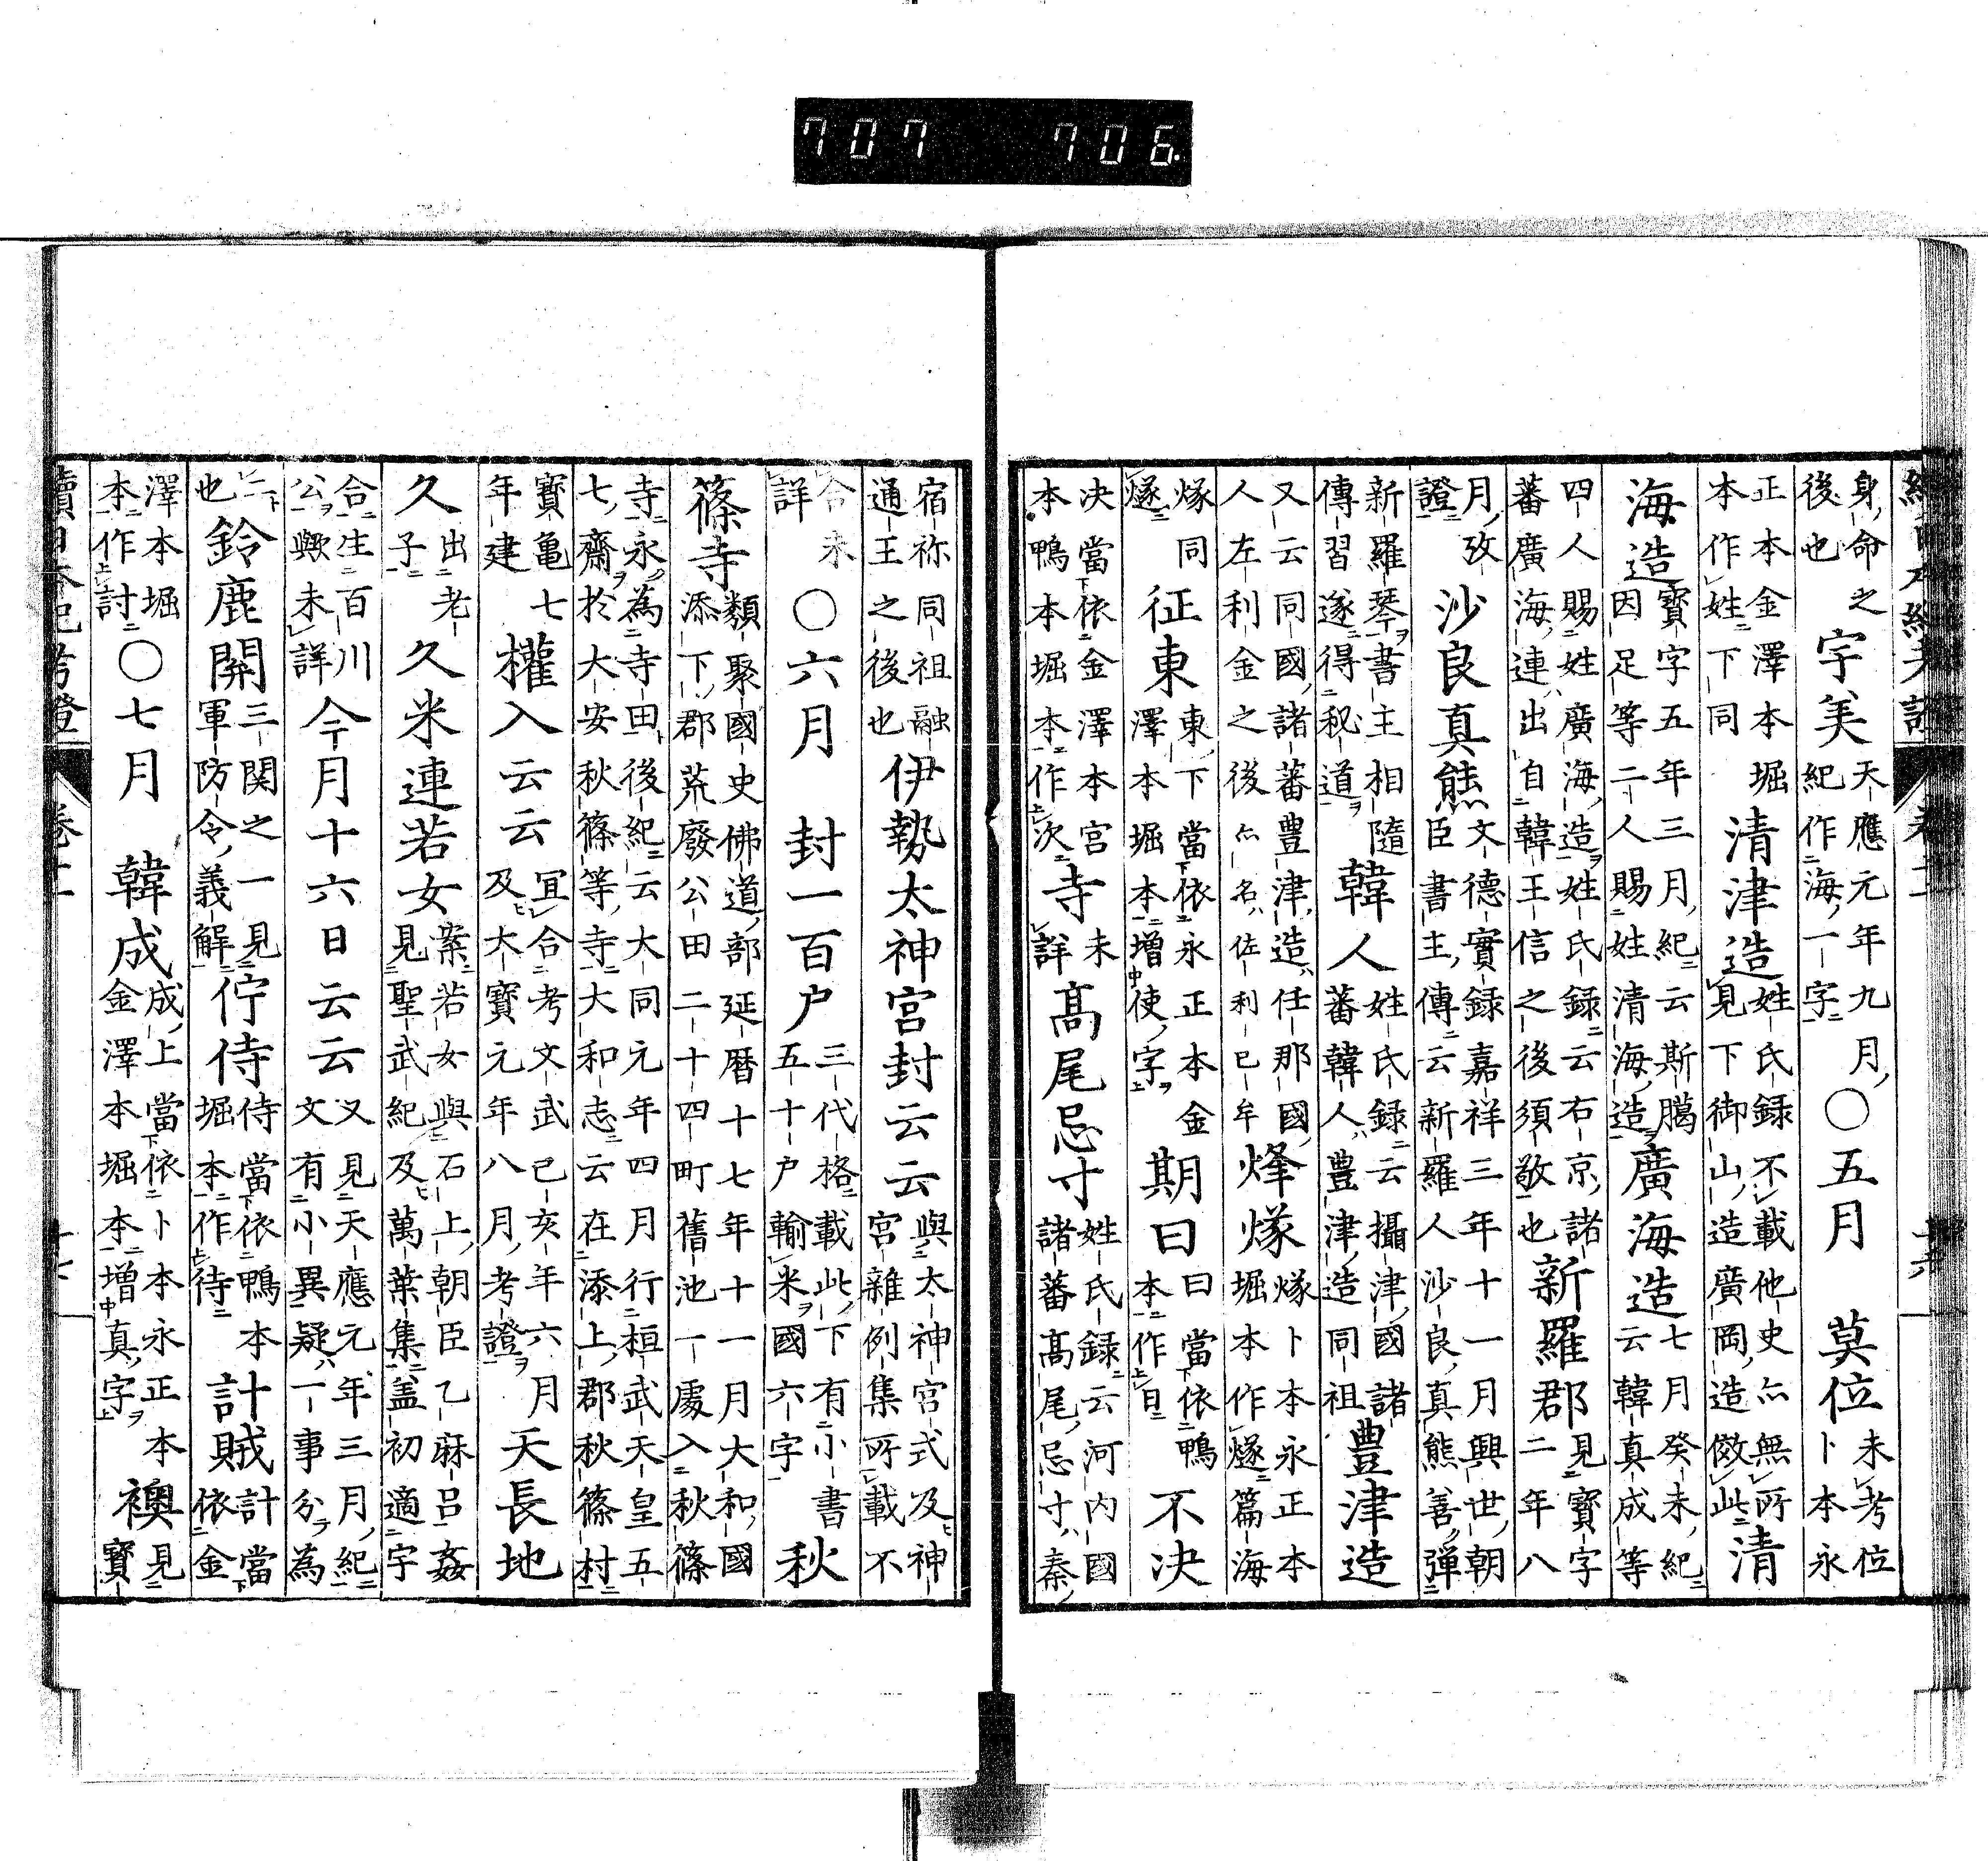 707 706
身命之後也 宇美 天應元年九月紀作海一字 ○五月 莫位 未考位卜本永
正本金澤本堀本作姓下同 清津造 姓氏録不載他史亦無所見下御山造廣岡造倣此 清
海造 寶字五年三月紀云斯﨟因足等二人賜姓清海造 廣海造 七月癸未紀云韓真成等
四人賜姓廣海造姓氏録云右京諸蕃廣海連出自韓王信之後須敬也 新羅郡 見寶字二年八
月攷證 沙良真熊 文德實録嘉祥三年十一月興世朝臣書主傳云新羅人沙良真熊善彈
新羅琴書主相隨傳習遂得秘道 韓人 姓氏録云攝津國諸蕃韓人豊津造同祖 豊津造
又云同國諸蕃豊津造任那國人左利金之後亦名佐利己牟 烽燧 燧卜本永正本堀本作㸂篇海
㸂同燧 征東 東下當依永正本金澤本堀本增使字 期日 日當依鴨本作日 不決
决當依金澤本宮本鴨本堀本作次 寺 未詳 髙尾忌寸 姓氏録云河内國諸蕃髙尾忌寸秦
宿祢同祖融通王之後也 伊勢太神宮封云云 與太神宮式及神宮雜例集所載不
合未詳 ○六月 封一百户 三代格載此下有小書五十户輸米國六字 秋
篠寺 類聚國史佛道部延暦十七年十一月大和國添下郡荒廢公田二十四町舊池一處入秋篠
寺永為寺田後紀云大同元年四月行桓武天皇五七齋於大安秋篠等寺大和志云在添上郡秋篠村
寶亀七年建 權入云云 冝合考文武己亥年六月及大寶元年八月考證 天長地
久 出老子 久米連若女 案若女與石上朝臣乙麻吕姦見聖武紀及萬葉集盖初適宇
合生百川公歟未詳 今月十六日云云 又見天應元年三月紀文有小異疑一事分為
二也 鈴鹿關 三関之一見軍防令義解 佇侍 侍當依鴨本堀本作待 計賊 計當依金
澤本堀本作討 ○七月 韓成 成上當依卜本永正本金澤本堀本增真字 襖 見寶
續日本紀考證 卷十一